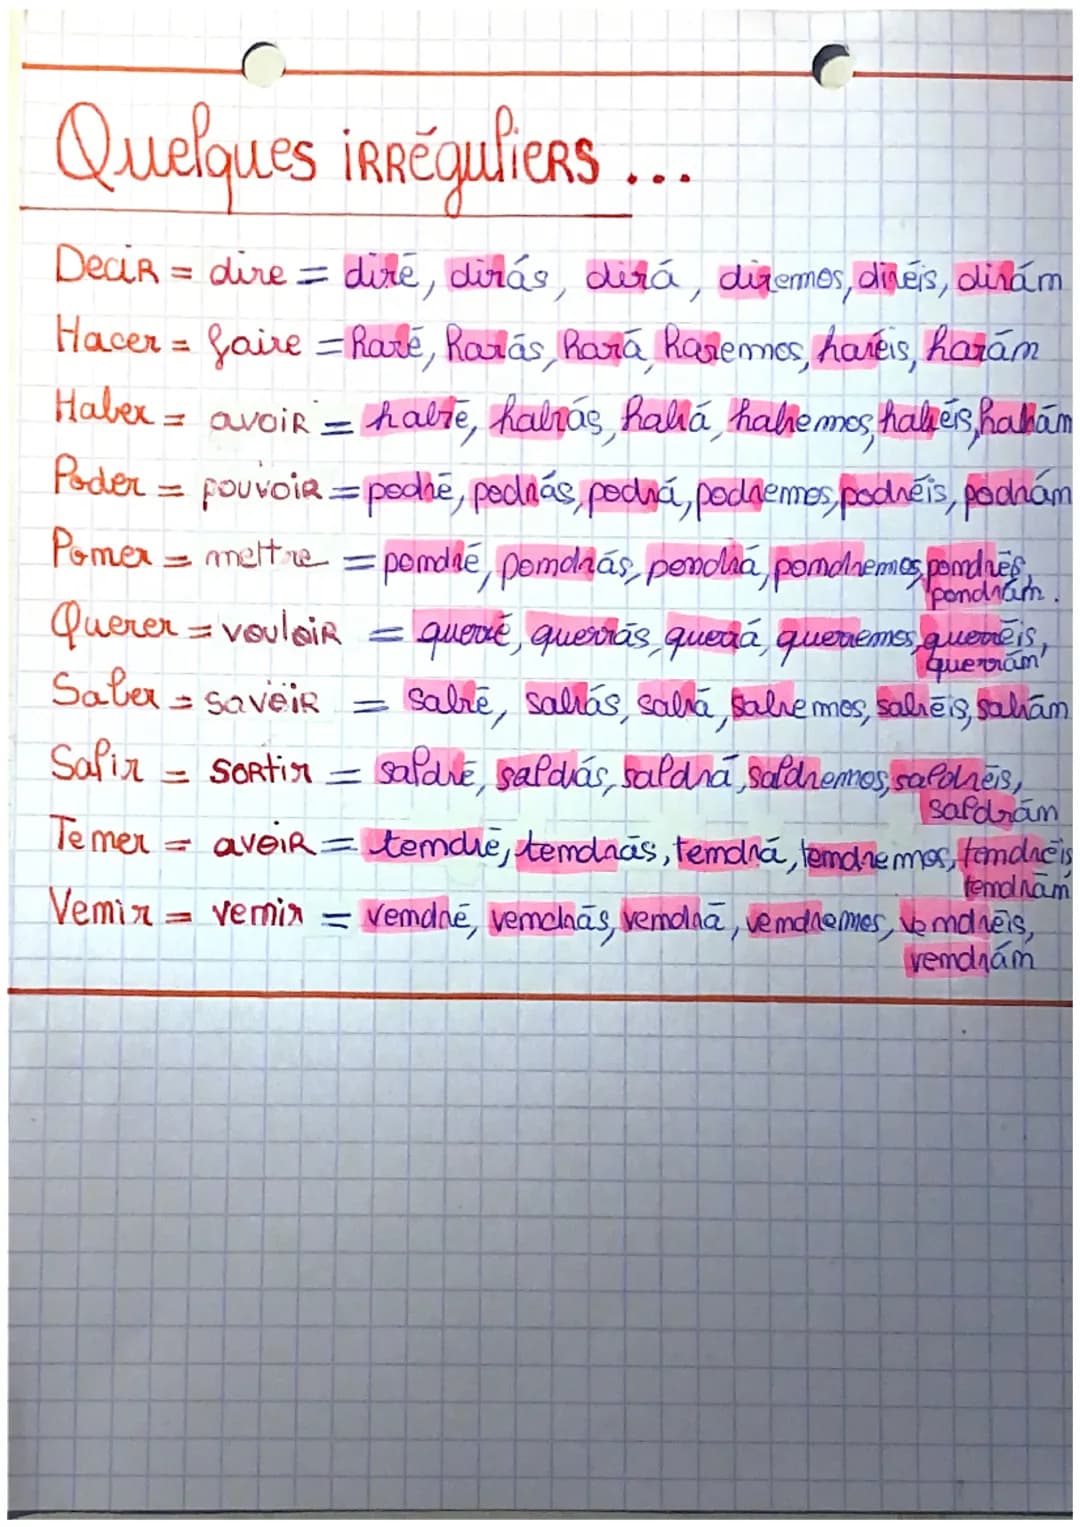 Quelques irréguliers...
Decir = dire = diré, dirás, dirá, diremos, diréis, dirán
Hacer = faire = haré, harás, hará, haremos, haréis, harán
Haber = avoir = habré, habrás, habrá, habremos, habréis, habrán
Poder = pouvoir = podré, podrás, podrá, podremos, podréis, podrán
Poner = mettre = pondré, pondrás, pondrá, pondremos, pondrés,
pondrán.
Querer = vouloir = querré, querrás, querrá, querremos, querréis,
querrán
Saber = savoir = sabré, sabrás, sabrá, sabremos, sabréis, sabrán
Salir = sortir = saldré, saldrás, saldrá, saldremos, saldréis,
saldrán
Tener = avoir = tendré, tendrás, tendrá, tendremos, tendréis
tendrán
Venir = venir = vendré, vendrás, vendrá, vendremos, vendréis,
vendrán